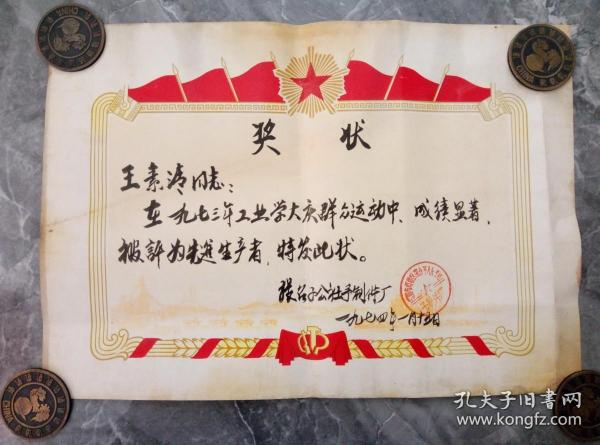 奖状
王素清同志：
在一九七三年工业学大庆群众运动中，成绩显著，
被评为先进生产者，特发此状。
张召子公社手制件厂
一九七四年一月十五日
孔夫子旧书网
kongfz.com